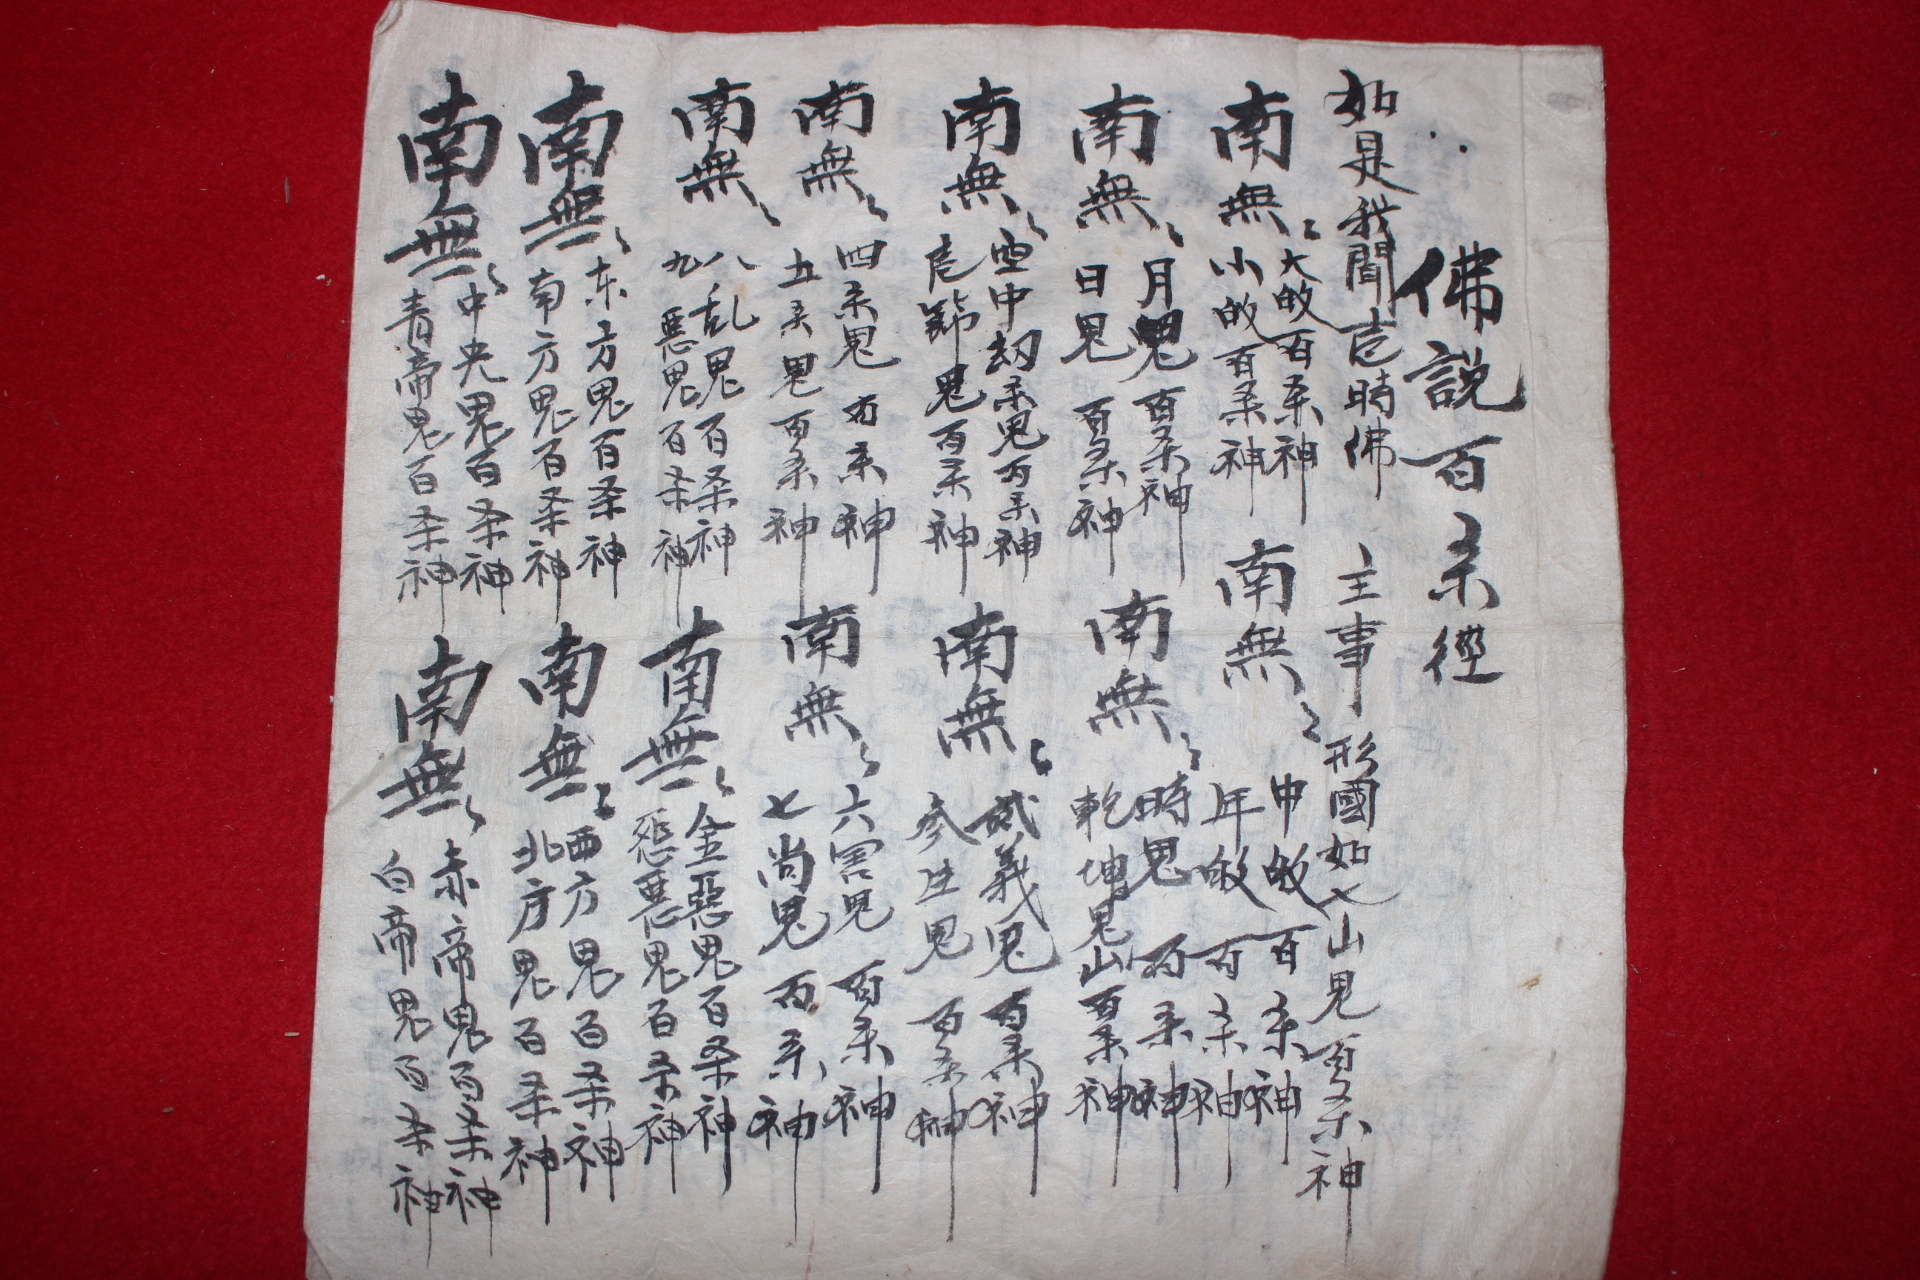 佛説百杀徑
如是我聞 時佛 主事 形國如七山鬼百杀神
南無 大 百杀神 小 百杀神
南無 申 百杀神 年 百杀神
南無 月鬼百杀神 日鬼百杀神
南無 時鬼百杀神 乾坤鬼山百杀神
南無 空中劫杀鬼百杀神 鬼百杀神
南無 貳義鬼百杀神 參 鬼百杀神
南無 四杀鬼百杀神 五杀鬼百杀神
南無 六害鬼百杀神 七尚鬼百杀神
南無 八乱鬼百杀神 九惡鬼百杀神
南無 金惡鬼百杀神 惡鬼百杀神
南無 东方鬼百杀神 南方鬼百杀神
南無 西方鬼百杀神 北方鬼百杀神
南無 中央鬼百杀神 青帝鬼百杀神
南無 赤帝鬼百杀神 白帝鬼百杀神